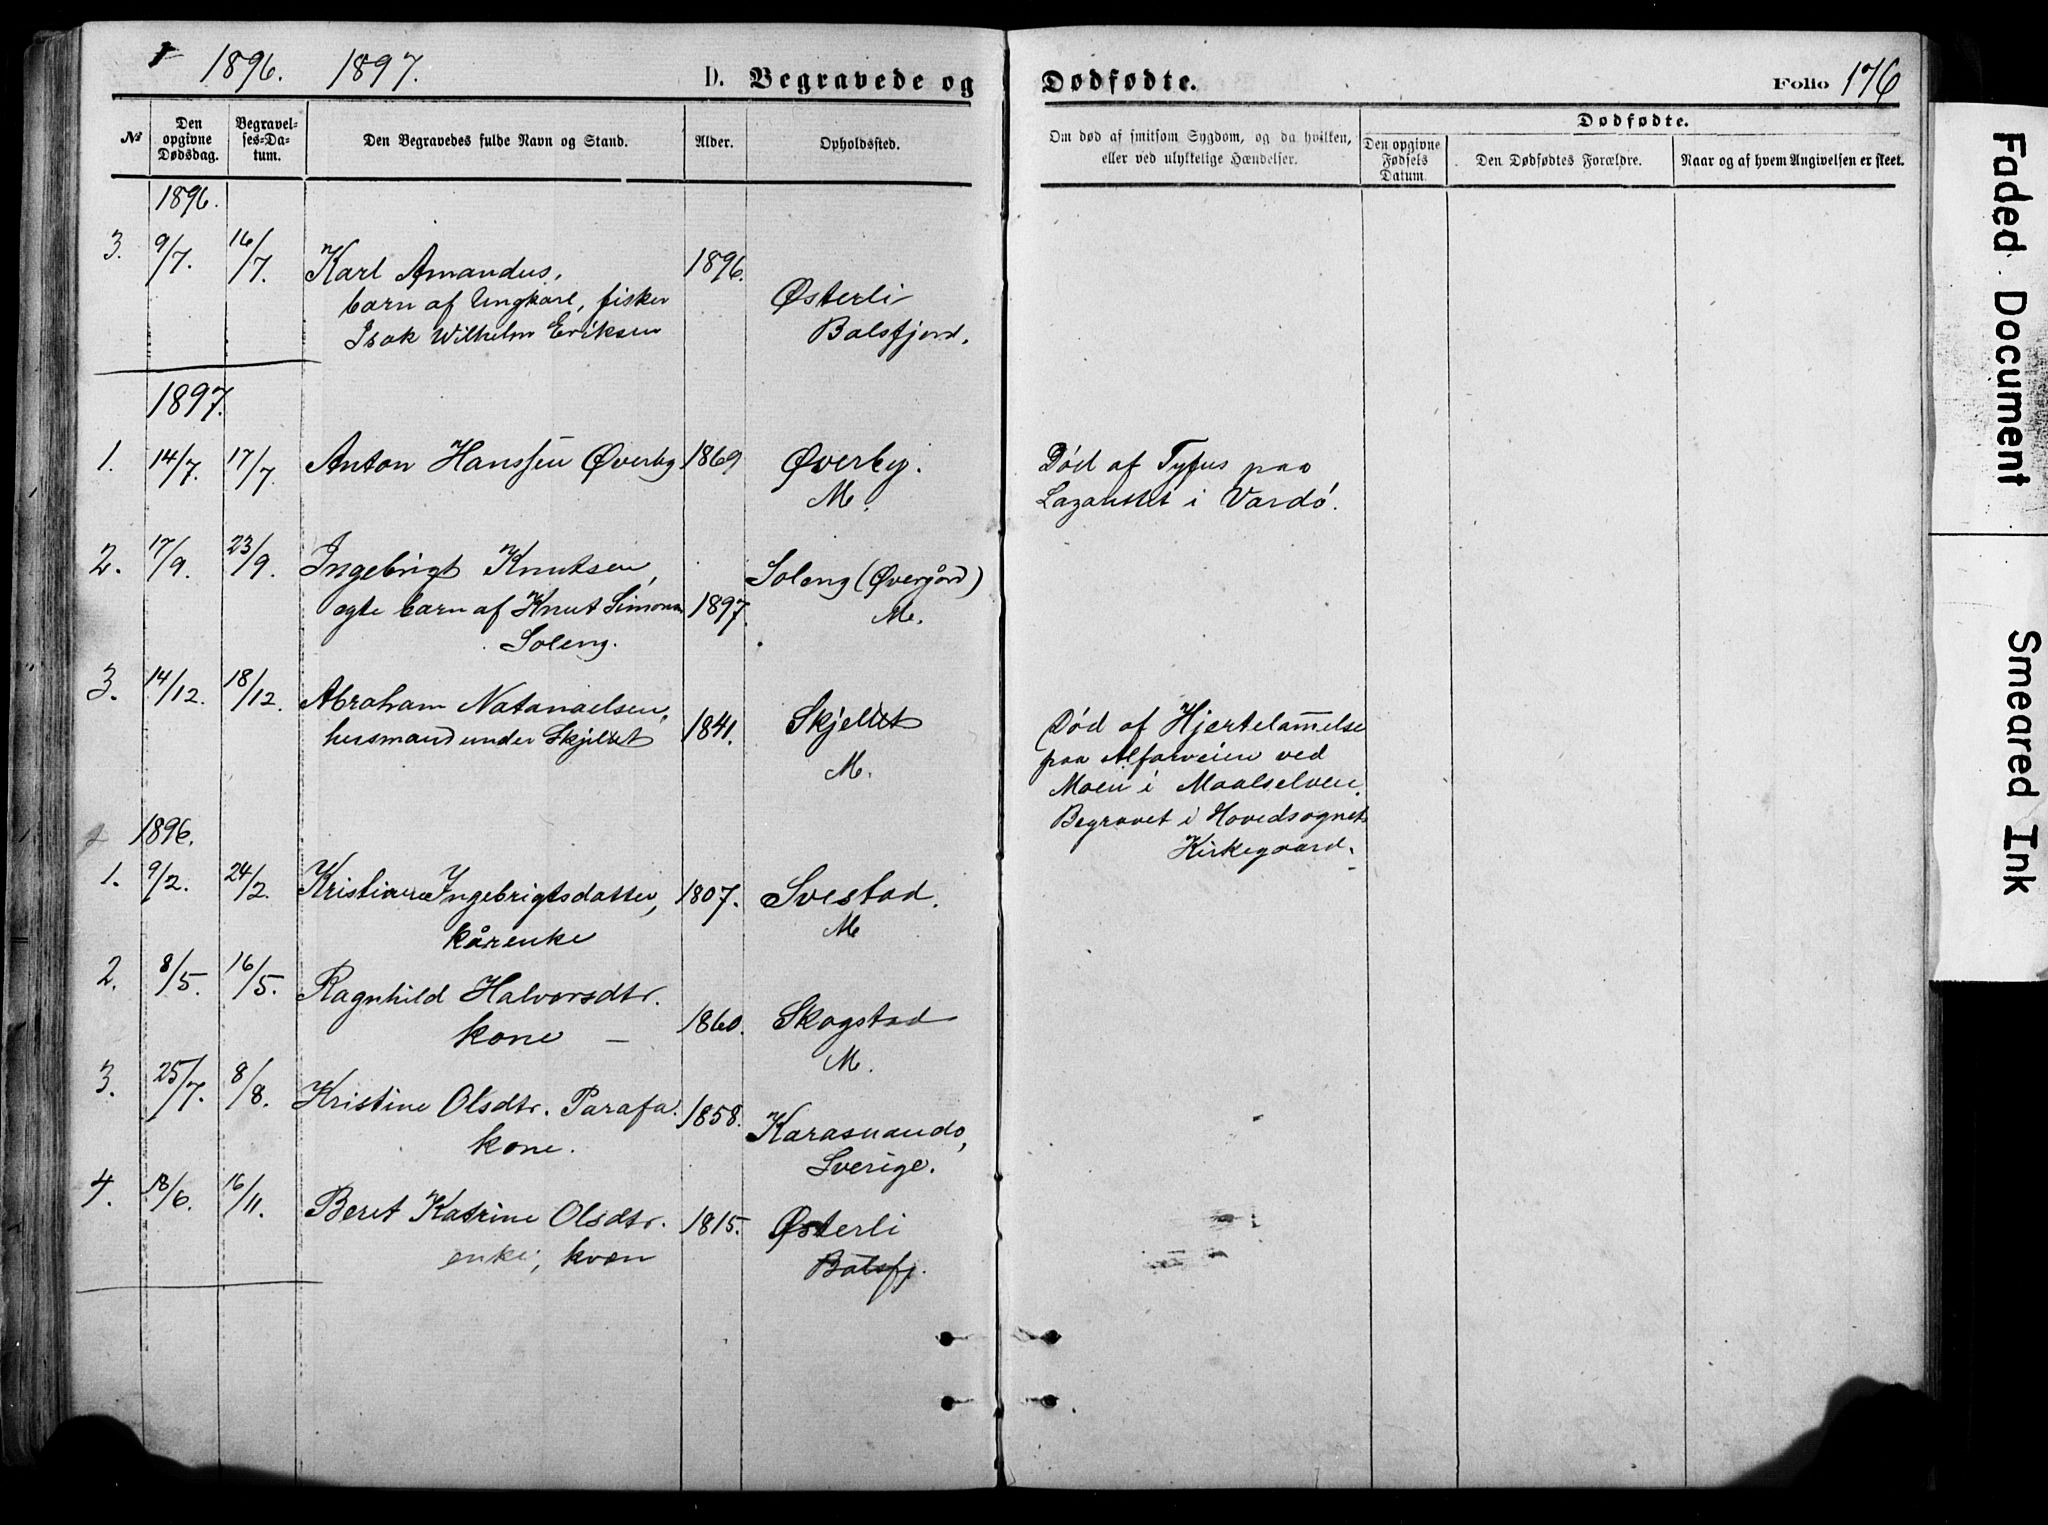 1896. 1897.
D. Begravede og Dødfødte.
Folio 176
№
Den opgivne Dødsdag.
Begravelses-Datum.
Den Begravedes fulde Navn og Stand.
Alder.
Opholdssted.
Om død af smitsom Sygdom, og da hvilken,
eller ved ulykkelige Hændelser.
Dødfødte.
Den opgivne Fødsels Datum.
Den Dødfødtes Forældre.
Naar og af hvem Angivelsen er skeet.
1896.
3. 9/7. 16/7. Karl Amandus, 1896.
barn af Ungkarl, fisker Østerli
Isak Wilhelm Eriksen Balsfjord.
1897.
1. 14/7. 17/7. Anton Hanssen Øverby 1869 Øverby. Død af Tyfus paa
M. Lazarettet i Vardö.
2. 17/9. 23/9. Ingebrigt Knutsen, Soleng (Øvergård)
egte barn af Knut Simons 1897. M.
Soleng.
3. 14/12. 18/12. Abraham Natanaelsen, 1841. Skjellet Død af Hjertelammelse
husmand under Skjellet M. paa Alfarveien ved
Moen i Maalselven.
Begravet i Hovedsognets
Kirkegaard.
1896.
1. 9/2. 24/2. Kristiane Ingebrigtsdatter, 1807. Svestad.
kårenke M
2. 8/5. 16/5. Ragnhild Halvorsdtr. 1860. Skogstad
kone – M.
3. 25/7. 8/8. Kristine Olsdtr. Parafa. 1858. Karasuando,
kone. Sverige.
4. 18/6. 16/11. Beret Katrine Olsdtr. 1815. Østerli
enke, kvæn Balsfj.
Faded Document
Smeared Ink